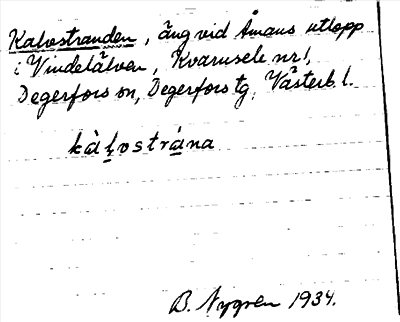 Kalvostranden, äng vid Åmans utlopp
i Vindelälven, Kvarnsele nr 1,
Degerfors sn, Degerfors tg. Västerb. l.
kàḷvostrána
B. Nygren 1934.